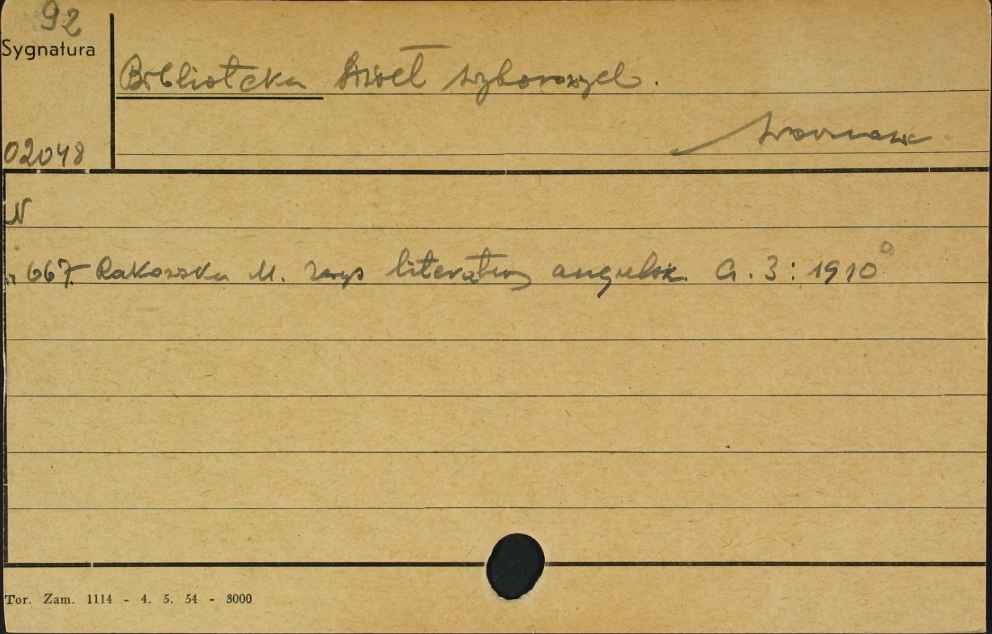 92
Sygnatura
Biblioteka Dzieł wyborowych.
Warszawa
02048
N
" 667. Rakowska M. Zarys literatury angielsk. Cz. 3 : 1910
Tor. Zam. 1114 - 4. 5. 54 - 3000